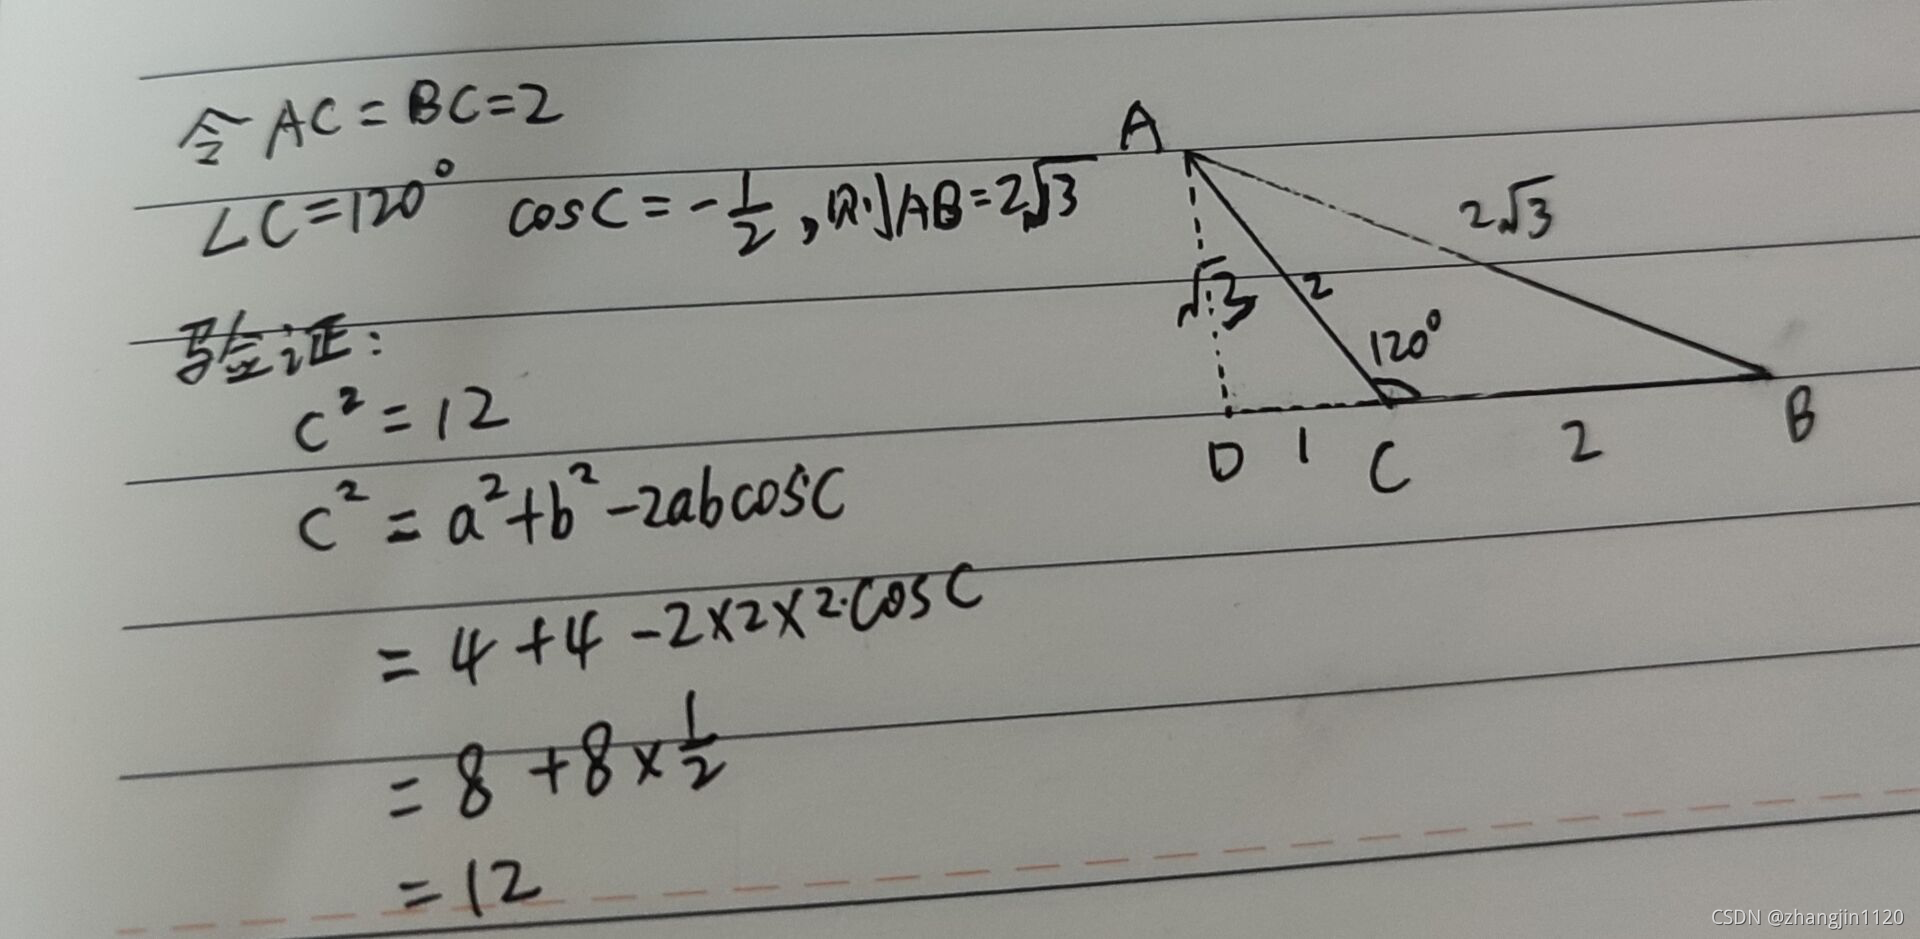 令 AC = BC = 2
∠C = 120° cosC = -1/2 , 则AB = 2√3
验证:
c² = 12
c² = a² + b² - 2abcosC
= 4 + 4 - 2×2×2·cosC
= 8 + 8 × 1/2
= 12
A
2√3
√3
2
120°
D 1 C 2 B
CSDN @zhangjin1120